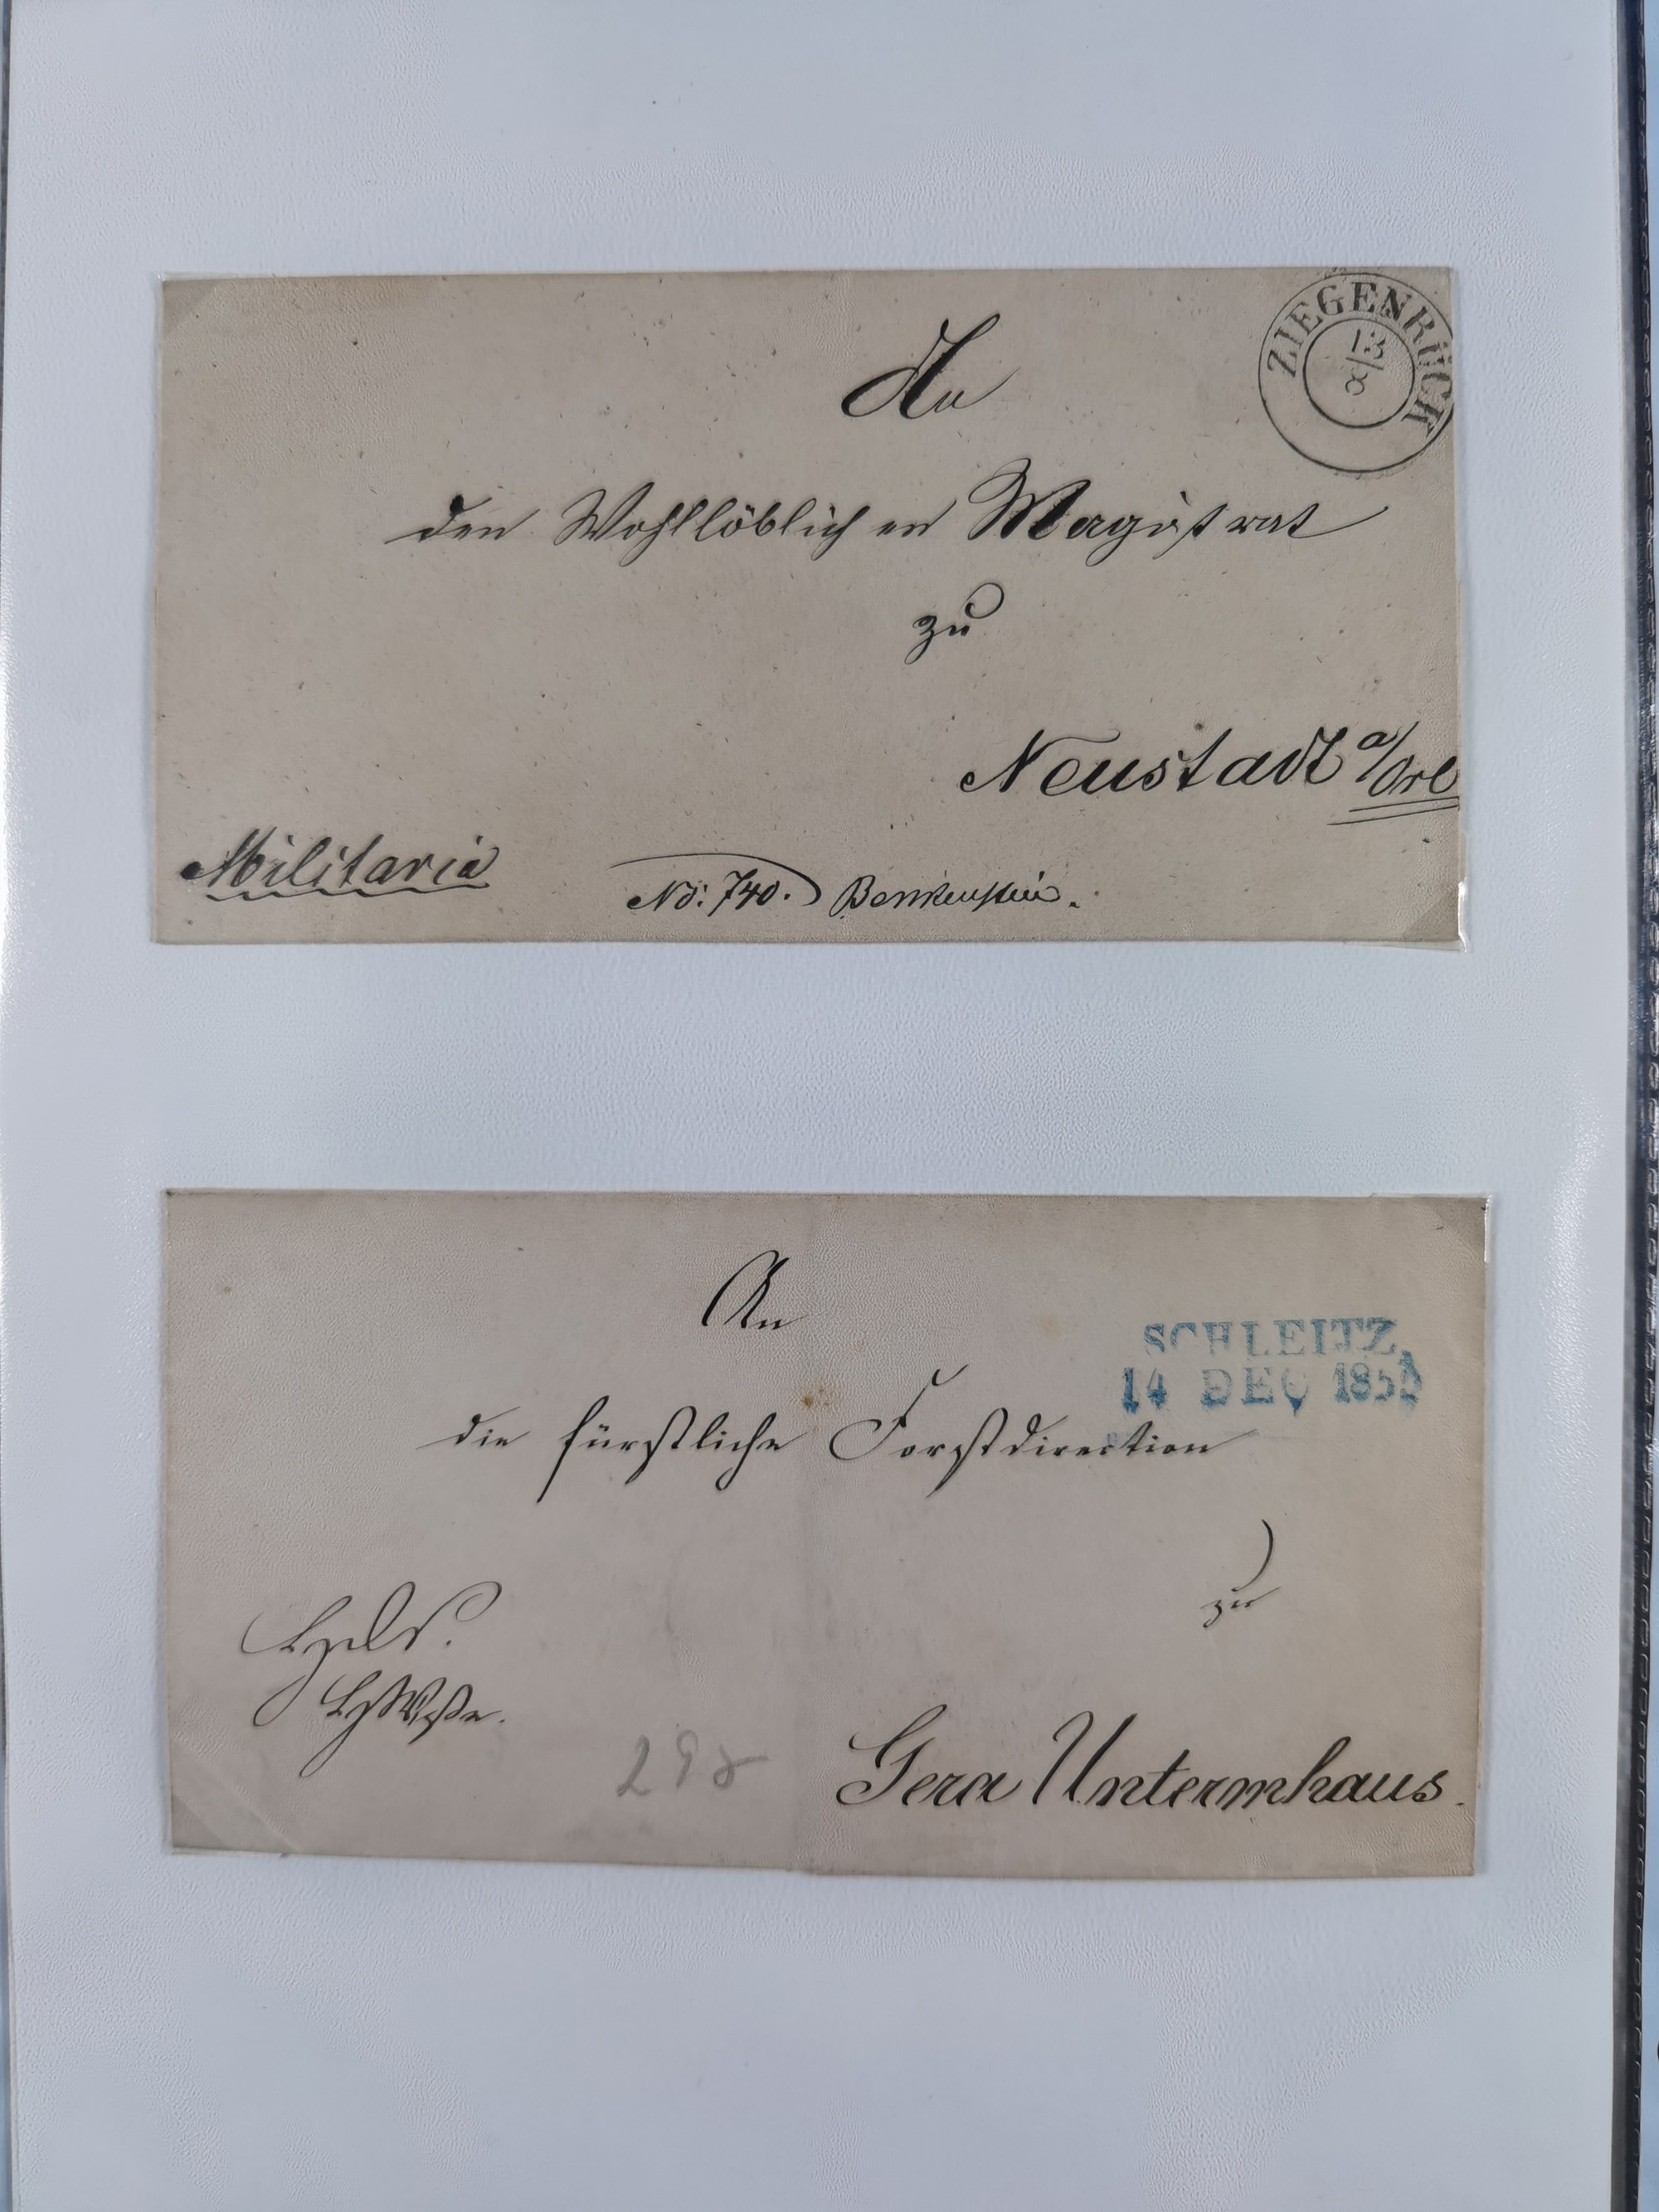 ZIEGENRÜCK
13/8
An
den Wohllöblichen Magistrat
zu
Neustadt a/Orl
Militaria
No: 740.
An
SCHLEITZ
14 DEC 185
die fürstliche Forstdirection
zu
298
Gera Untermhaus.